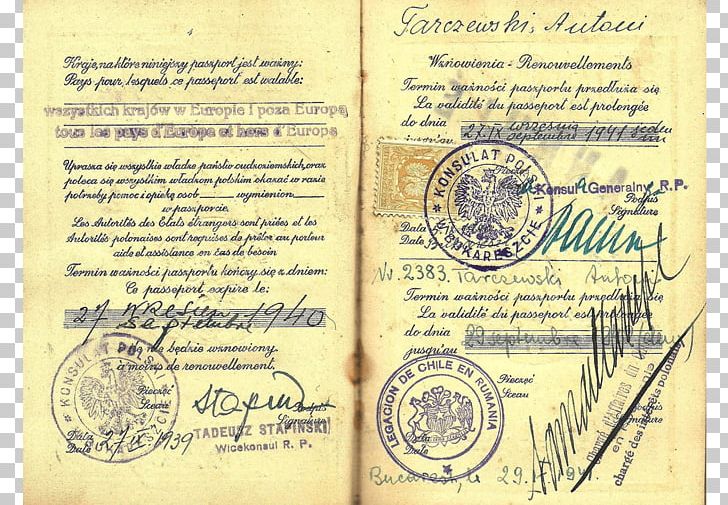 Kraje, na które niniejszy paszport jest ważny:
Pays pour lesquels ce passeport est valable:
wszystkich krajów w Europie i poza Europą
tous les pays d'Europe et hors d'Europe
Uprasza się wszystkie władze państw cudzoziemskich, oraz
poleca się wszystkim władzom polskim okazać w razie
potrzeby pomoc i opiekę osob wymienion
w paszporcie.
Les Autorités des États étrangers sont priées et les
Autorités polonaises sont requises de prêter au porteur
aide et assistance en cas de besoin
Termin ważności paszportu kończy się z dniem:
Ce passeport expire le:
27 września 1940
septembre
nie będzie wznowiony
à moins de renouvellement.
KONSULAT POLSKI
Pieczęć
Sceau
Podpis
Signature
TADEUSZ STAPIŃSKI
Wicekonsul R. P.
Data
Date 27 IX 1939
Tarczewski, Antoni
Wznowienia - Renouvellements
Termin ważności paszportu przedłuża się
La validité du passeport est prolongée
do dnia
jusqu'au
27 IX września 1941
septembre
KONSULAT POLSKI
W BUKARESZCIE
Konsul Generalny R. P.
Podpis
Signature
Data
Date
Nr. 2383. Tarczewski Antoni
Termin ważności paszportu przedłuża się
La validité du passeport est prolongée
do dnia
jusqu'au
29 septembre
LEGACION DE CHILE EN RUMANIA
Pieczęć
Sceau
Podpis
Signature
d'Affaires du
chargé des intérêts polonais
Data
Date
Bucarest, le 29